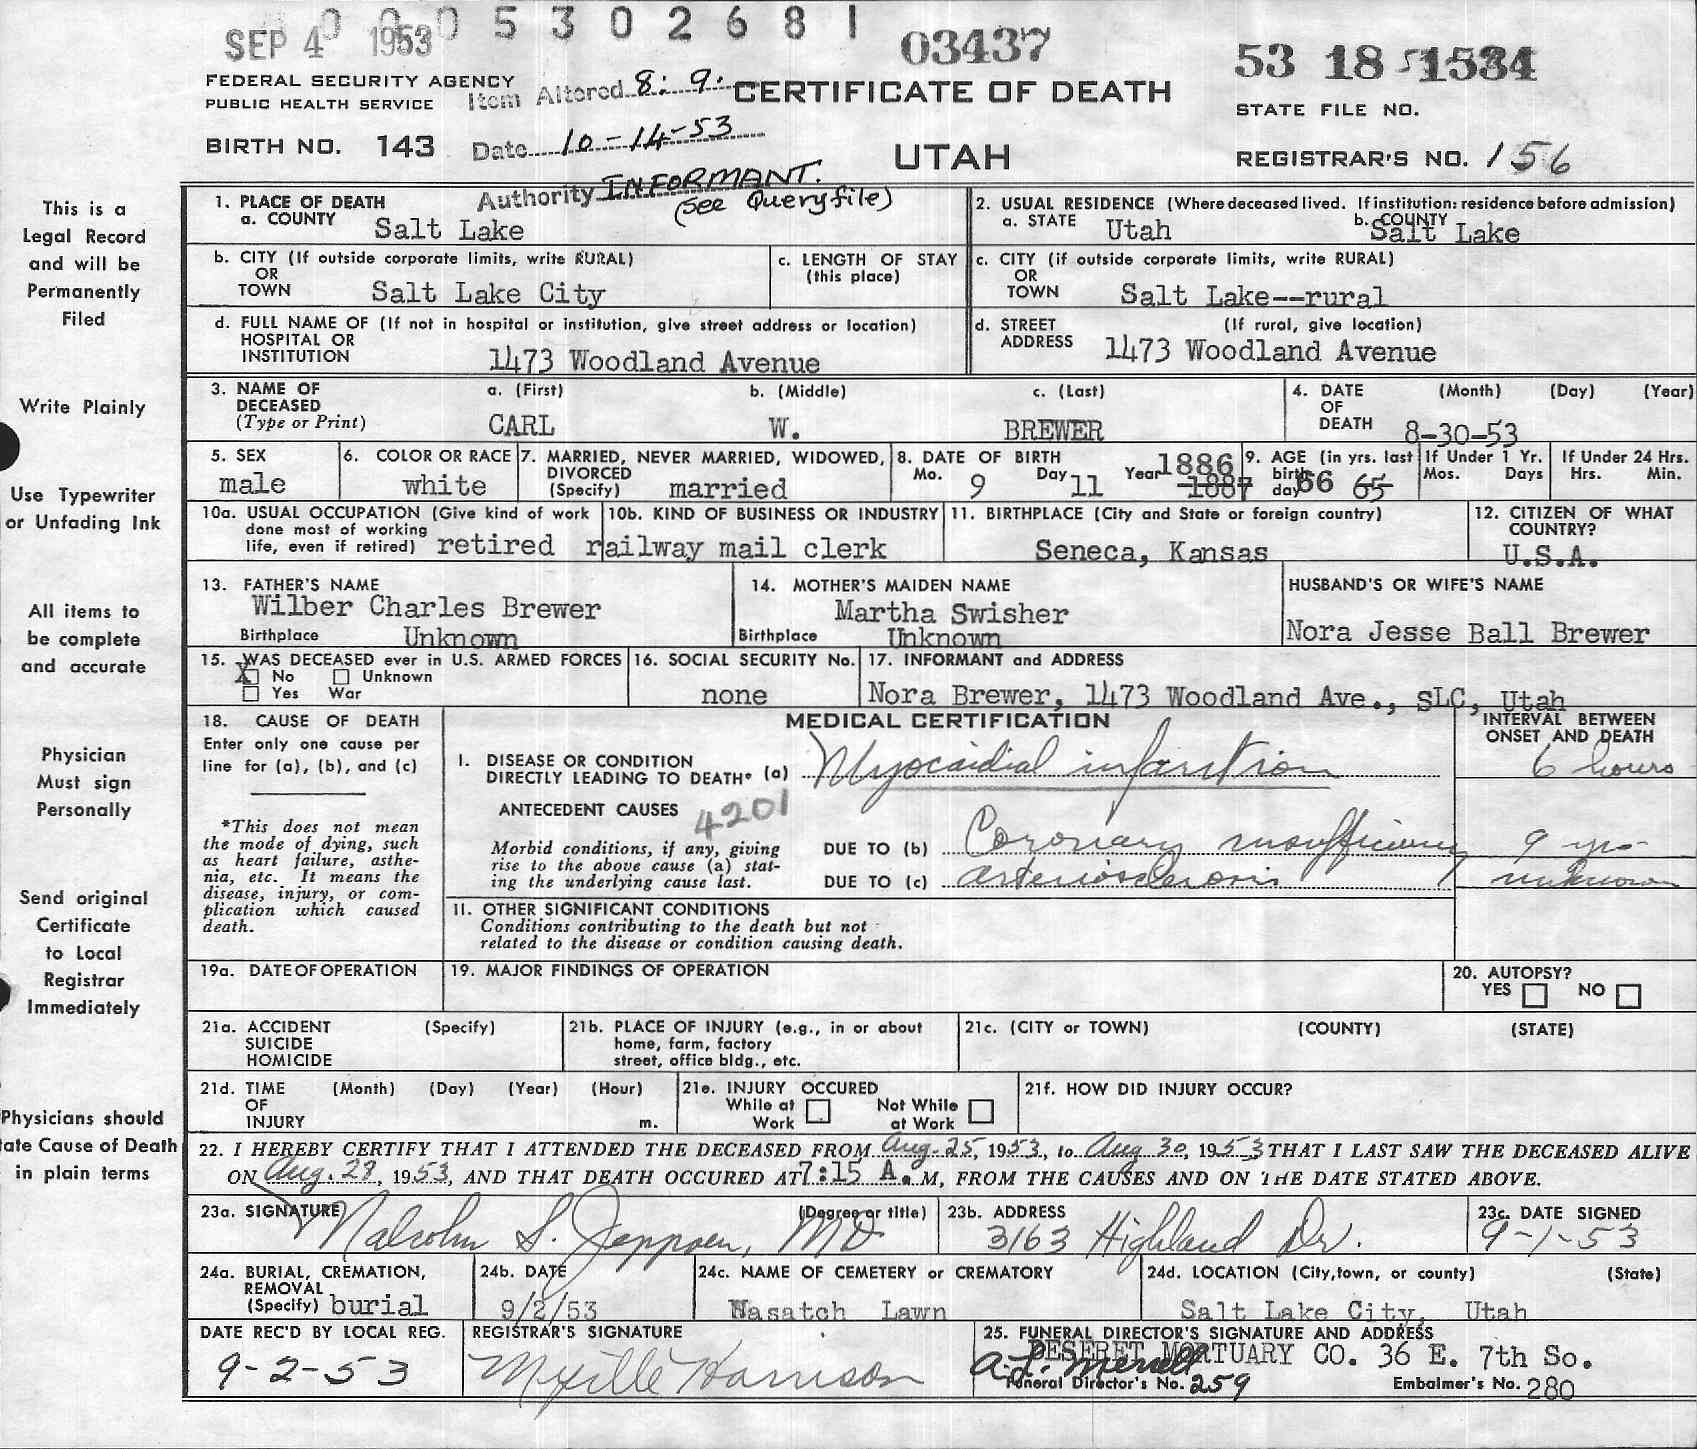 0 0 0 5 3 0 2 6 8 1
SEP 4 1953
03437
53 18 1534
FEDERAL SECURITY AGENCY
PUBLIC HEALTH SERVICE
Item Altered 8: 9.
CERTIFICATE OF DEATH
STATE FILE NO.
BIRTH NO. 143
Date 10-14-53
UTAH
REGISTRAR'S NO. 156
Authority INFORMANT.
(See Query file)
This is a
Legal Record
and will be
Permanently
Filed
Write Plainly
Use Typewriter
or Unfading Ink
All items to
be complete
and accurate
Physician
Must sign
Personally
Send original
Certificate
to Local
Registrar
Immediately
Physicians should
ate Cause of Death
in plain terms
1. PLACE OF DEATH
a. COUNTY Salt Lake
2. USUAL RESIDENCE (Where deceased lived. If institution: residence before admission)
a. STATE Utah b. COUNTY Salt Lake
b. CITY (If outside corporate limits, write RURAL)
OR
TOWN Salt Lake City
c. LENGTH OF STAY
(this place)
c. CITY (if outside corporate limits, write RURAL)
OR
TOWN Salt Lake--rural
d. FULL NAME OF (If not in hospital or institution, give street address or location)
HOSPITAL OR
INSTITUTION 1473 Woodland Avenue
d. STREET (If rural, give location)
ADDRESS 1473 Woodland Avenue
3. NAME OF a. (First) b. (Middle) c. (Last)
DECEASED
(Type or Print) CARL W. BREWER
4. DATE (Month) (Day) (Year)
OF
DEATH 8-30-53
5. SEX
male
6. COLOR OR RACE
white
7. MARRIED, NEVER MARRIED, WIDOWED,
DIVORCED
(Specify) married
8. DATE OF BIRTH 1886
Mo. 9 Day 11 Year 1887
9. AGE (in yrs. last
birth
day 66 65
If Under 1 Yr.
Mos. Days
If Under 24 Hrs.
Hrs. Min.
10a. USUAL OCCUPATION (Give kind of work
done most of working
life, even if retired) retired railway mail clerk
10b. KIND OF BUSINESS OR INDUSTRY
11. BIRTHPLACE (City and State or foreign country)
Seneca, Kansas
12. CITIZEN OF WHAT
COUNTRY?
U.S.A.
13. FATHER'S NAME
Wilber Charles Brewer
Birthplace Unknown
14. MOTHER'S MAIDEN NAME
Martha Swisher
Birthplace Unknown
HUSBAND'S OR WIFE'S NAME
Nora Jesse Ball Brewer
15. WAS DECEASED ever in U.S. ARMED FORCES
X No Unknown
Yes War
16. SOCIAL SECURITY No.
none
17. INFORMANT and ADDRESS
Nora Brewer, 1473 Woodland Ave., SLC, Utah
18. CAUSE OF DEATH
Enter only one cause per
line for (a), (b), and (c)
*This does not mean
the mode of dying, such
as heart failure, asthe-
nia, etc. It means the
disease, injury, or com-
plication which caused
death.
MEDICAL CERTIFICATION
INTERVAL BETWEEN
ONSET AND DEATH
I. DISEASE OR CONDITION
DIRECTLY LEADING TO DEATH* (a) Myocardial infarction 6 hours
ANTECEDENT CAUSES 4201
Morbid conditions, if any, giving
rise to the above cause (a) stat-
ing the underlying cause last.
DUE TO (b) Coronary insufficiency 9 yrs
DUE TO (c) arteriosclerosis unknown
11. OTHER SIGNIFICANT CONDITIONS
Conditions contributing to the death but not
related to the disease or condition causing death.
19a. DATE OF OPERATION
19. MAJOR FINDINGS OF OPERATION
20. AUTOPSY?
YES NO
21a. ACCIDENT (Specify)
SUICIDE
HOMICIDE
21b. PLACE OF INJURY (e.g., in or about
home, farm, factory
street, office bldg., etc.
21c. (CITY or TOWN) (COUNTY) (STATE)
21d. TIME (Month) (Day) (Year) (Hour)
OF
INJURY m.
21e. INJURY OCCURED
While at Work Not While at Work
21f. HOW DID INJURY OCCUR?
22. I HEREBY CERTIFY THAT I ATTENDED THE DECEASED FROM Aug. 25, 1953, to Aug 30, 1953 THAT I LAST SAW THE DECEASED ALIVE
ON Aug. 28, 1953, AND THAT DEATH OCCURED AT 7:15 A. M, FROM THE CAUSES AND ON THE DATE STATED ABOVE.
23a. SIGNATURE (Degree or title)
Malcolm S. Jeppsen, MD
23b. ADDRESS
3163 Highland Dr.
23c. DATE SIGNED
9-1-53
24a. BURIAL, CREMATION,
REMOVAL
(Specify) burial
24b. DATE
9/2/53
24c. NAME OF CEMETERY or CREMATORY
Wasatch Lawn
24d. LOCATION (City, town, or county) (State)
Salt Lake City, Utah
DATE REC'D BY LOCAL REG.
9-2-53
REGISTRAR'S SIGNATURE
Myrille Harrison
25. FUNERAL DIRECTOR'S SIGNATURE AND ADDRESS
DESERET MORTUARY CO. 36 E. 7th So.
Funeral Director's No. 259 Embalmer's No. 280